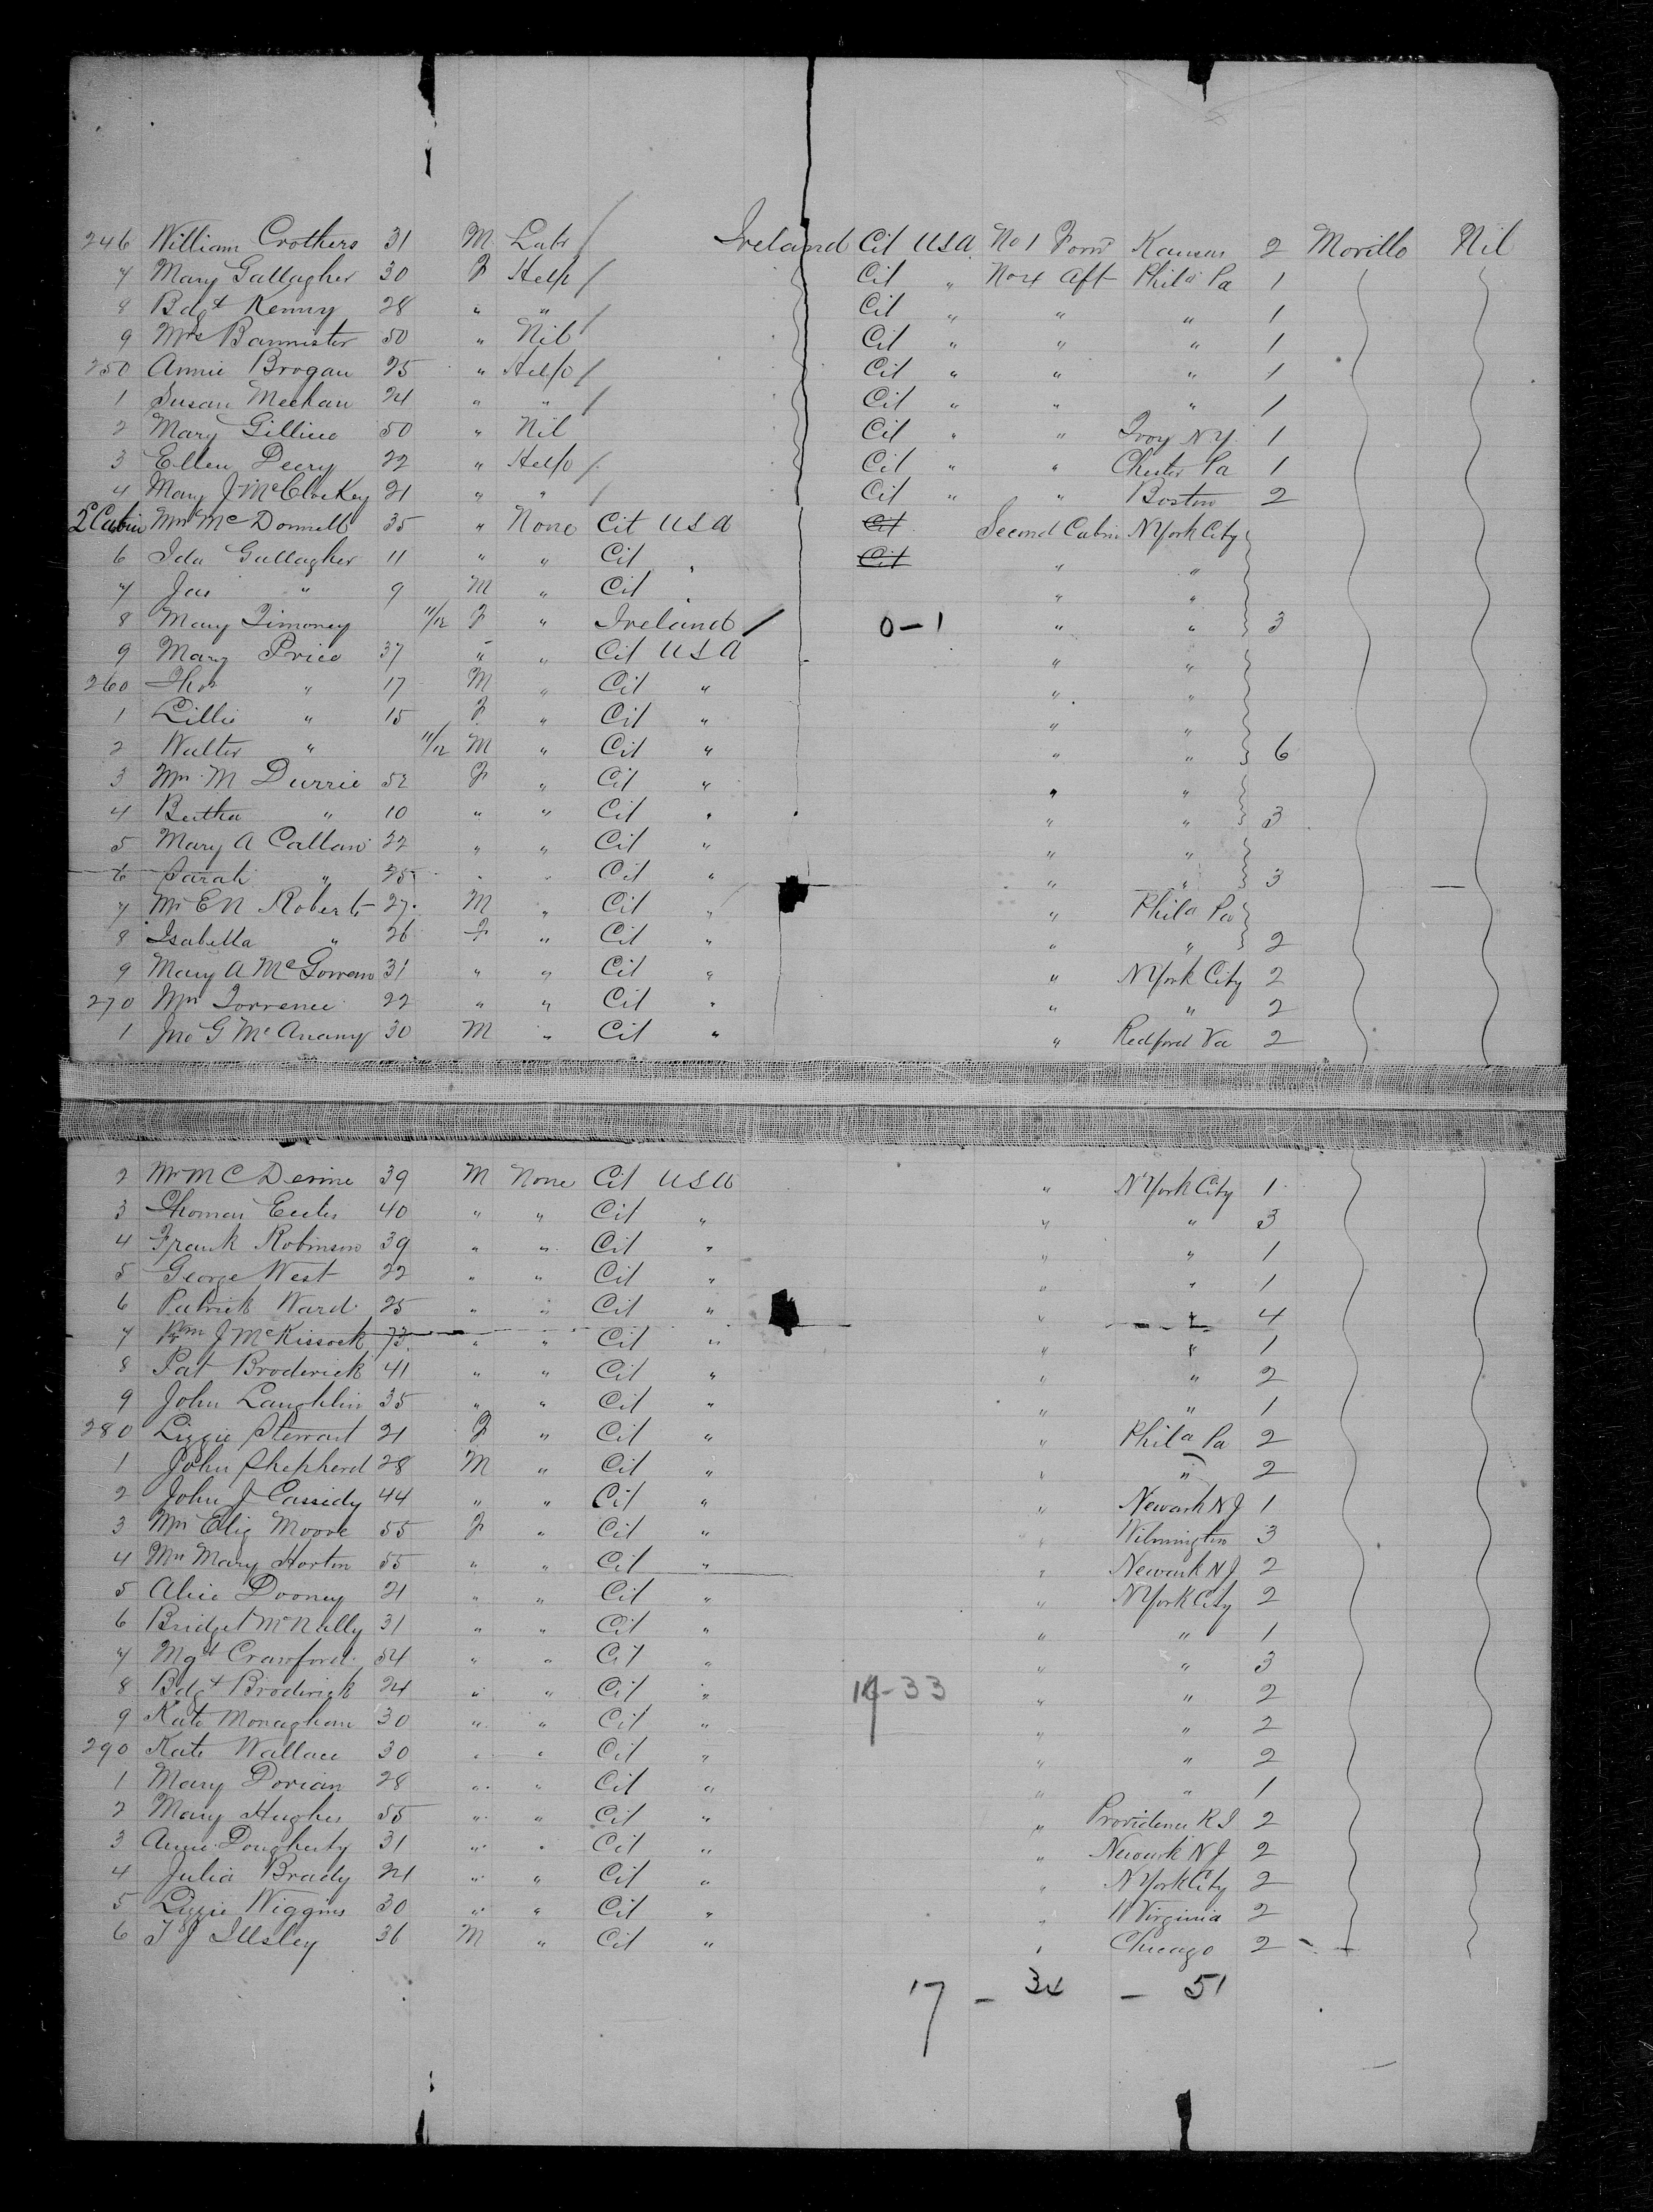 246 William Crothers 31 M Labr / Ireland Cit USA No 1 Forwd Kansas 2 Moville Nil
7 Mary Gallagher 30 F Help / Cit " No 4 Aft Phila Pa 1
8 Bdgt Kenny 28 " " / Cit " " " 1
9 Mrs Bannister 50 " Nil / Cit " " " 1
250 Annie Brogan 25 " Help / Cit " " " 1
1 Susan Meehan 24 " " / Cit " " " 1
2 Mary 50 " Nil Cit " " Troy N Y 1
3 Ellen Deery 22 " Help / Cit " " Chester Pa 1
4 Mary J McCloskey 21 " " / Cit " " Boston 2
2d Cabin Mrs McDonnell 35 " None Cit USA Cit Second Cabin N York City
6 Ida Gallagher 11 " " Cit " Cit " "
7 Jas " 9 M " Cit " " "
8 Mary Timoney 11/12 F " Ireland / 0-1 " " 3
9 Mary Price 37 " " Cit USA " "
260 Thos " 17 M " Cit " " "
1 Lillie " 15 F " Cit " " "
2 Walter " 11/12 M " Cit " " " 6
3 Mrs M Durrie 52 F " Cit " " "
4 Bertha " 10 " " Cit " " " 3
5 Mary A Callan 22 " " Cit " " "
6 Sarah " 25 " " Cit " " " 3
7 Mr E N Roberts 27 M " Cit " " Phila Pa
8 Isabella " 26 F " Cit " " " 2
9 Mary A McGowan 31 " " Cit " " N York City 2
270 Mrs Torrence 22 " " Cit " " " 2
1 Jno G McAnany 30 M " Cit " " Redford Va 2
2 Mr M C Devine 39 M None Cit USA " N York City 1
3 Thomas Eccles 40 " " Cit " " " 3
4 Frank Robinson 39 " " Cit " " " 1
5 George West 22 " " Cit " " " 1
6 Patrick Ward 25 " " Cit " " " 4
7 Wm J McKissock 73 " " Cit " " " 1
8 Pat Broderick 41 " " Cit " " " 2
9 John Laughlin 35 " " Cit " " " 1
280 Lizzie Stewart 21 F " Cit " " Phila Pa 2
1 John Shepherd 28 M " Cit " " " 2
2 John J Cassidy 44 " " Cit " " Newark N J 1
3 Mrs Eliz Moore 55 F " Cit " " Wilmington 3
4 Mrs Mary Horton 55 " " Cit " " Newark N J 2
5 Alice Dooney 21 " " Cit " " N York City 2
6 Bridget McNally 31 " " Cit " " " 1
7 Mgt Crawford 54 " " Cit " " " 3
8 Bdgt Broderick 24 " " Cit " -33 " " 2
9 Kate Monaghan 30 " " Cit " " " 2
290 Kate Wallace 30 " " Cit " " " 2
1 Mary Dorian 28 " " Cit " " " 1
2 Mary Hughes 55 " " Cit " " Providence R I 2
3 Annie Dougherty 31 " " Cit " " Newark N J 2
4 Julia Brady 21 " " Cit " " N York City 2
5 Lizzie Wiggins 30 " " Cit " " W Virginia 2
6 T J Illsley 36 M " Cit " " Chicago 2
17 - 34 - 51